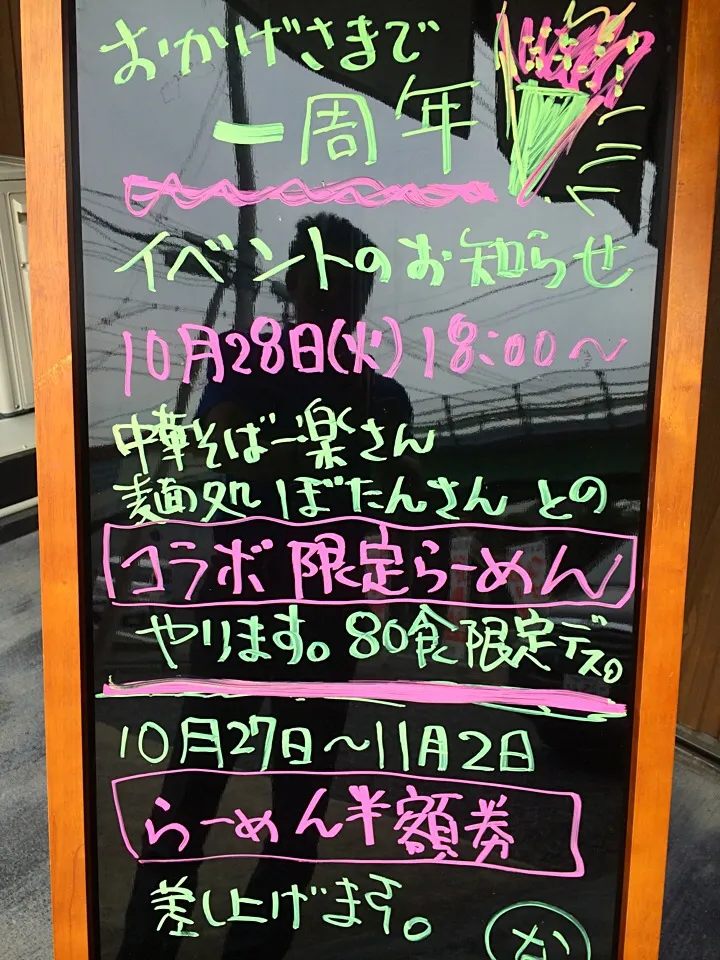 おかげさまで
一周年
イベントのお知らせ
10月28日(火)18:00~
中華そば一楽さん
麺処ぼたんさんとの
コラボ限定らーめん
やります。80食限定デス。
10月27日~11月2日
らーめん半額券
差し上げます。
な